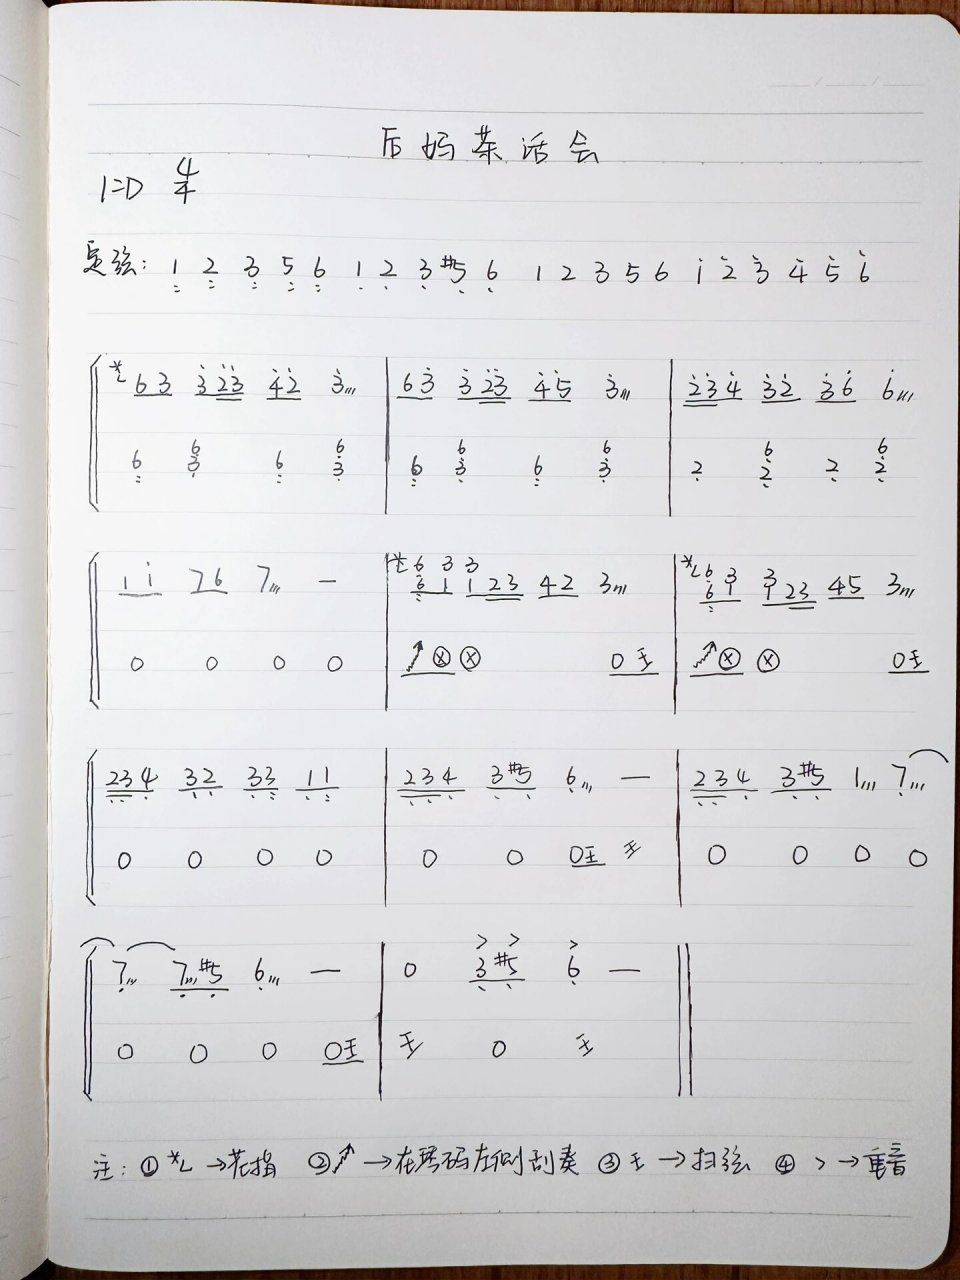 后妈茶话会
1=D 4/4
定弦: 1 2 3 5 6 1 2 3 #5 6 1 2 3 5 6 i 2 3 4 5 6
6 3 3 2 3 4 2 3 | 6 3 3 2 3 4 5 3 | 2 3 4 3 2 3 6 6
6 6/3 6 6/3 | 6 6/3 6 6/3 | 2 6/2 2 6/2
1 i 7 6 7 — | 6/6 3/1 3/1 2 3 4 2 3 | 6/6 3/1 3/1 2 3 4 5 3
0 0 0 0 | ⓧ ⓧ 0 | ⓧ ⓧ 0
2 3 4 3 2 3 3 1 1 | 2 3 4 3 #5 6 — | 2 3 4 3 #5 1 7
0 0 0 0 | 0 0 0 | 0 0 0 0
7 7 #5 6 — | 0 3 #5 6 —
0 0 0 0 | 0
注: ① *L → 花指 ② → 在琴码左侧刮奏 ③ → 扫弦 ④ > → 重音